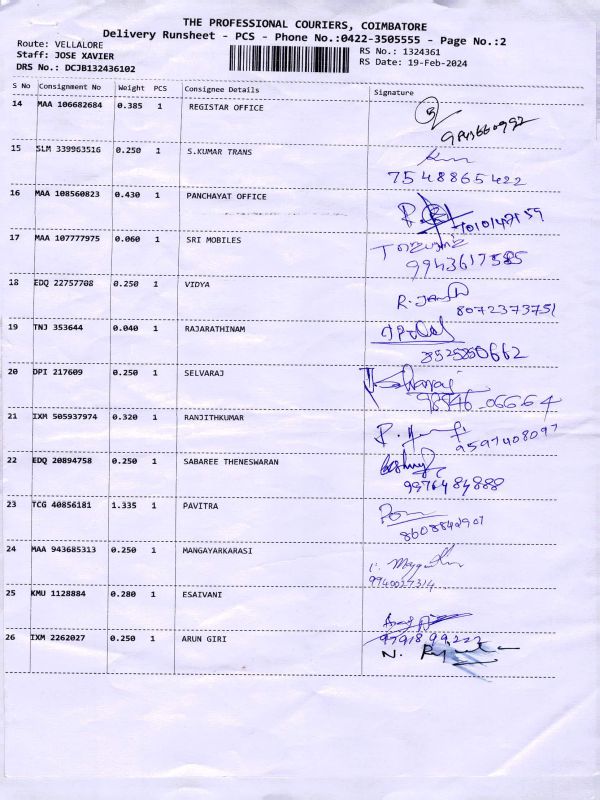 THE PROFESSIONAL COURIERS, COIMBATORE
Delivery Runsheet - PCS - Phone No.:0422-3505555 - Page No.:2
Route: VELLALORE
Staff: JOSE XAVIER
DRS No.: DCJB132436102
RS No.: 1324361
RS Date: 19-Feb-2024
S No Consignment No Weight PCS Consignee Details Signature
14 MAA 106682684 0.385 1 REGISTAR OFFICE
15 SLM 339963516 0.250 1 S.KUMAR TRANS
7548865422
16 MAA 108560823 0.430 1 PANCHAYAT OFFICE
17 MAA 107777975 0.060 1 SRI MOBILES
9943617585
18 EDQ 22757708 0.250 1 VIDYA
8072373751
19 TNJ 353644 0.040 1 RAJARATHINAM
8525850662
20 DPI 217609 0.250 1 SELVARAJ
98846 06664
21 IXM 505937974 0.320 1 RANJITHKUMAR
9597408097
22 EDQ 20894758 0.250 1 SABAREE THENESWARAN
9976484888
23 TCG 40856181 1.335 1 PAVITRA
24 MAA 943685313 0.250 1 MANGAYARKARASI
9940027314
25 KMU 1128884 0.280 1 ESAIVANI
26 IXM 2262027 0.250 1 ARUN GIRI